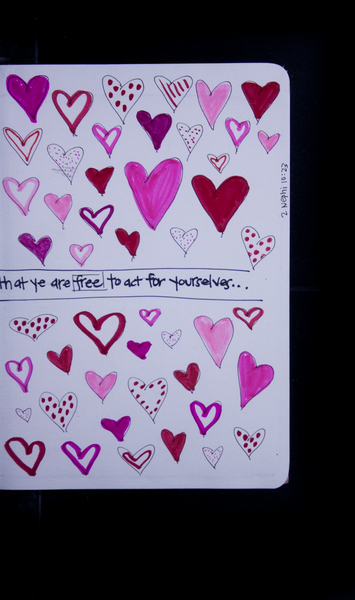 that ye are free to act for yourselves...
2 Nephi 10:23